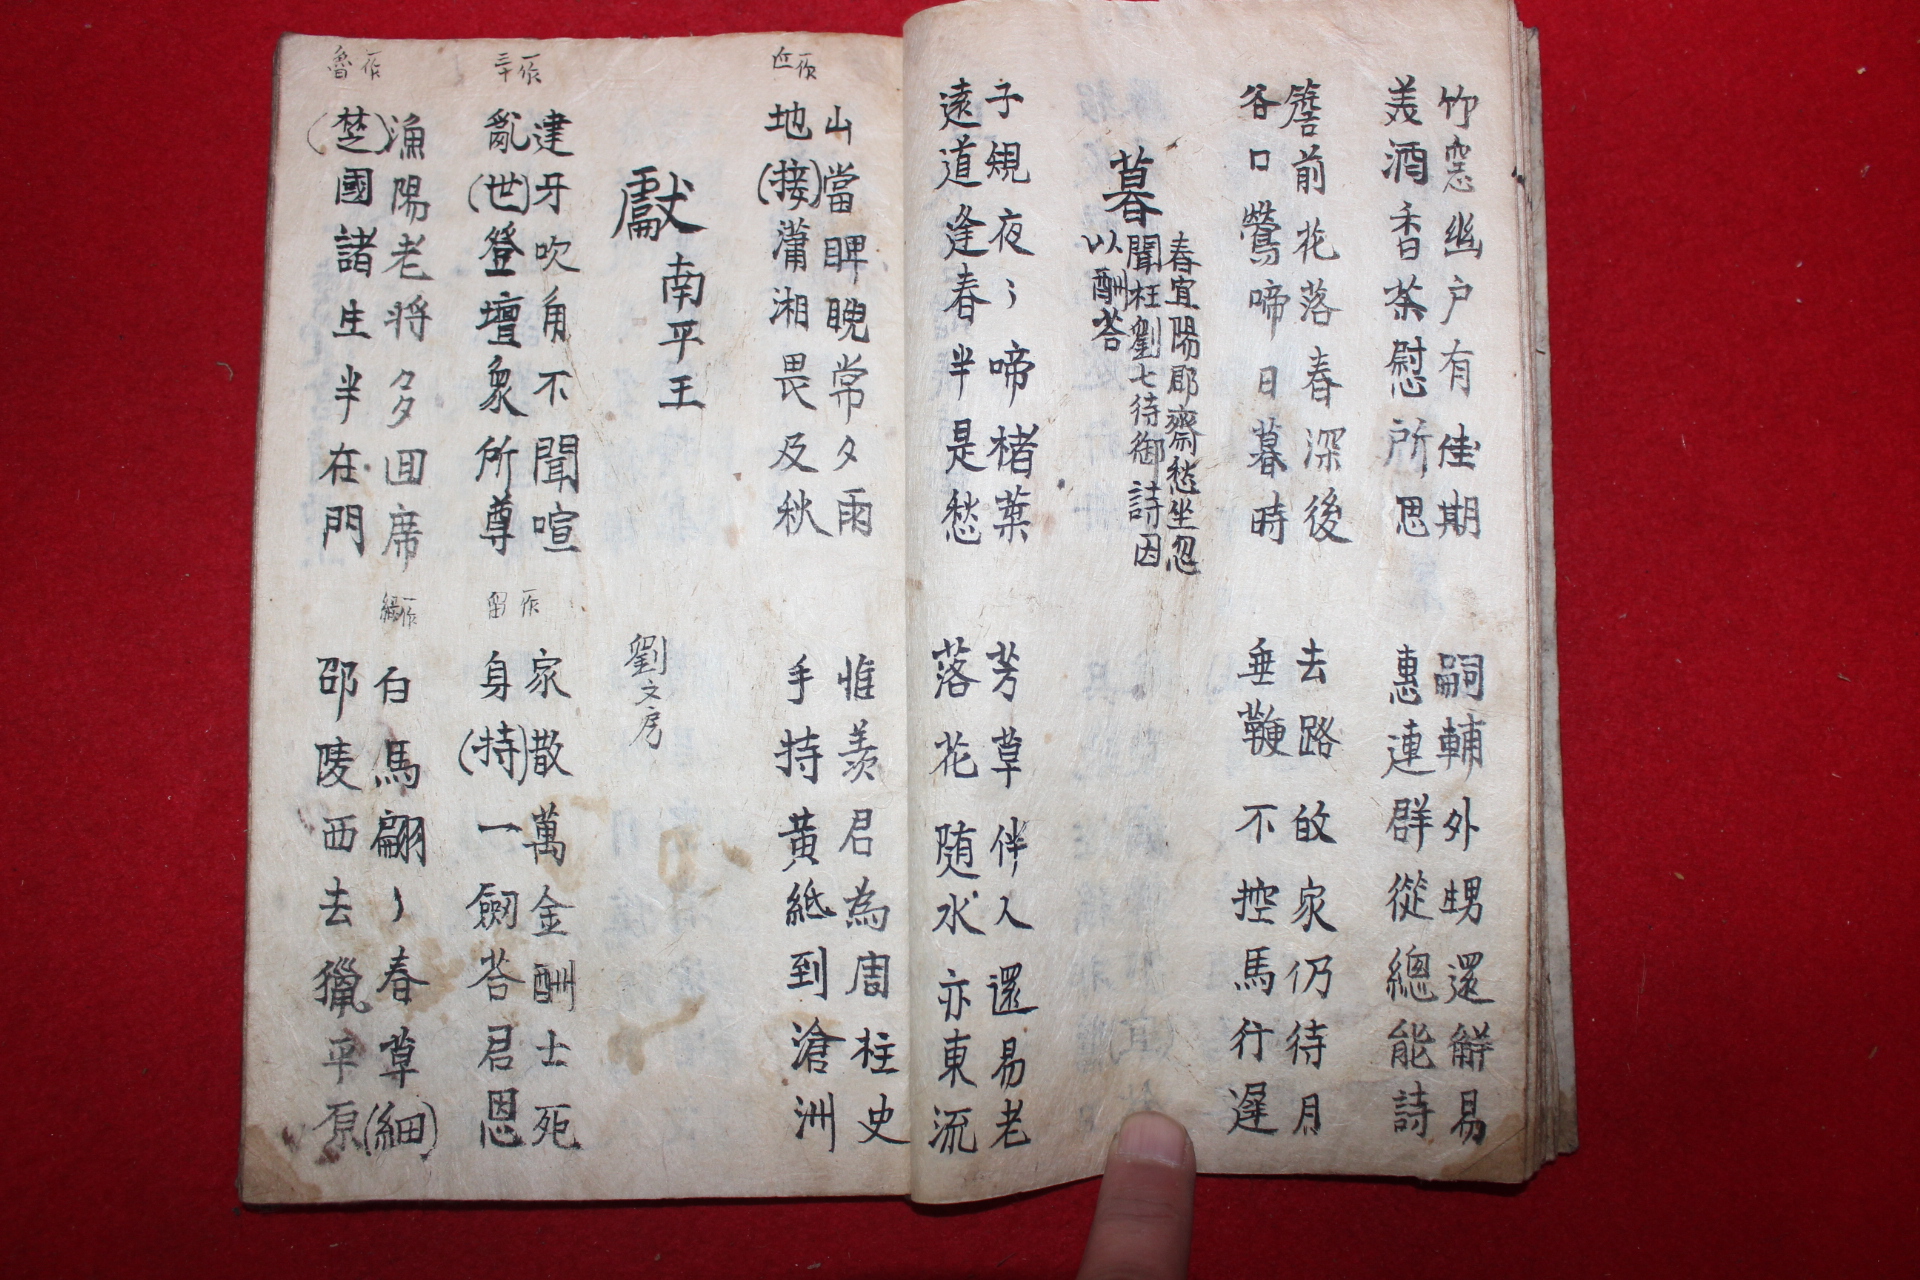 竹窓幽户有佳期
美酒香茶慰所思
嗣輔外甥還解易
惠連群從總能詩
簷前花落春深後
谷口鶯啼日暮時
去路故家仍待月
垂鞭不控馬行遲
暮春宜陽郡齋愁坐忽
聞枉劉七待御詩因
以酬荅
子規夜〻啼楮葉
遠道逢春半是愁
芳草伴人還易老
落花随水亦東流
山當睥睨常夕雨
地(接)瀟湘畏及秋
近一作
惟羨君為周柱史
手持黄紙到滄洲
獻南平王
劉文房
建牙吹角不聞喧
亂(世)登壇衆所尊
三十一作
家散萬金酬士死
身(持)一劒荅君恩
留一作
漁陽老將多回席
(楚)國諸生半在門
魯一作
白馬翩〻春草(細)
邵陵西去獵平原
綠一作